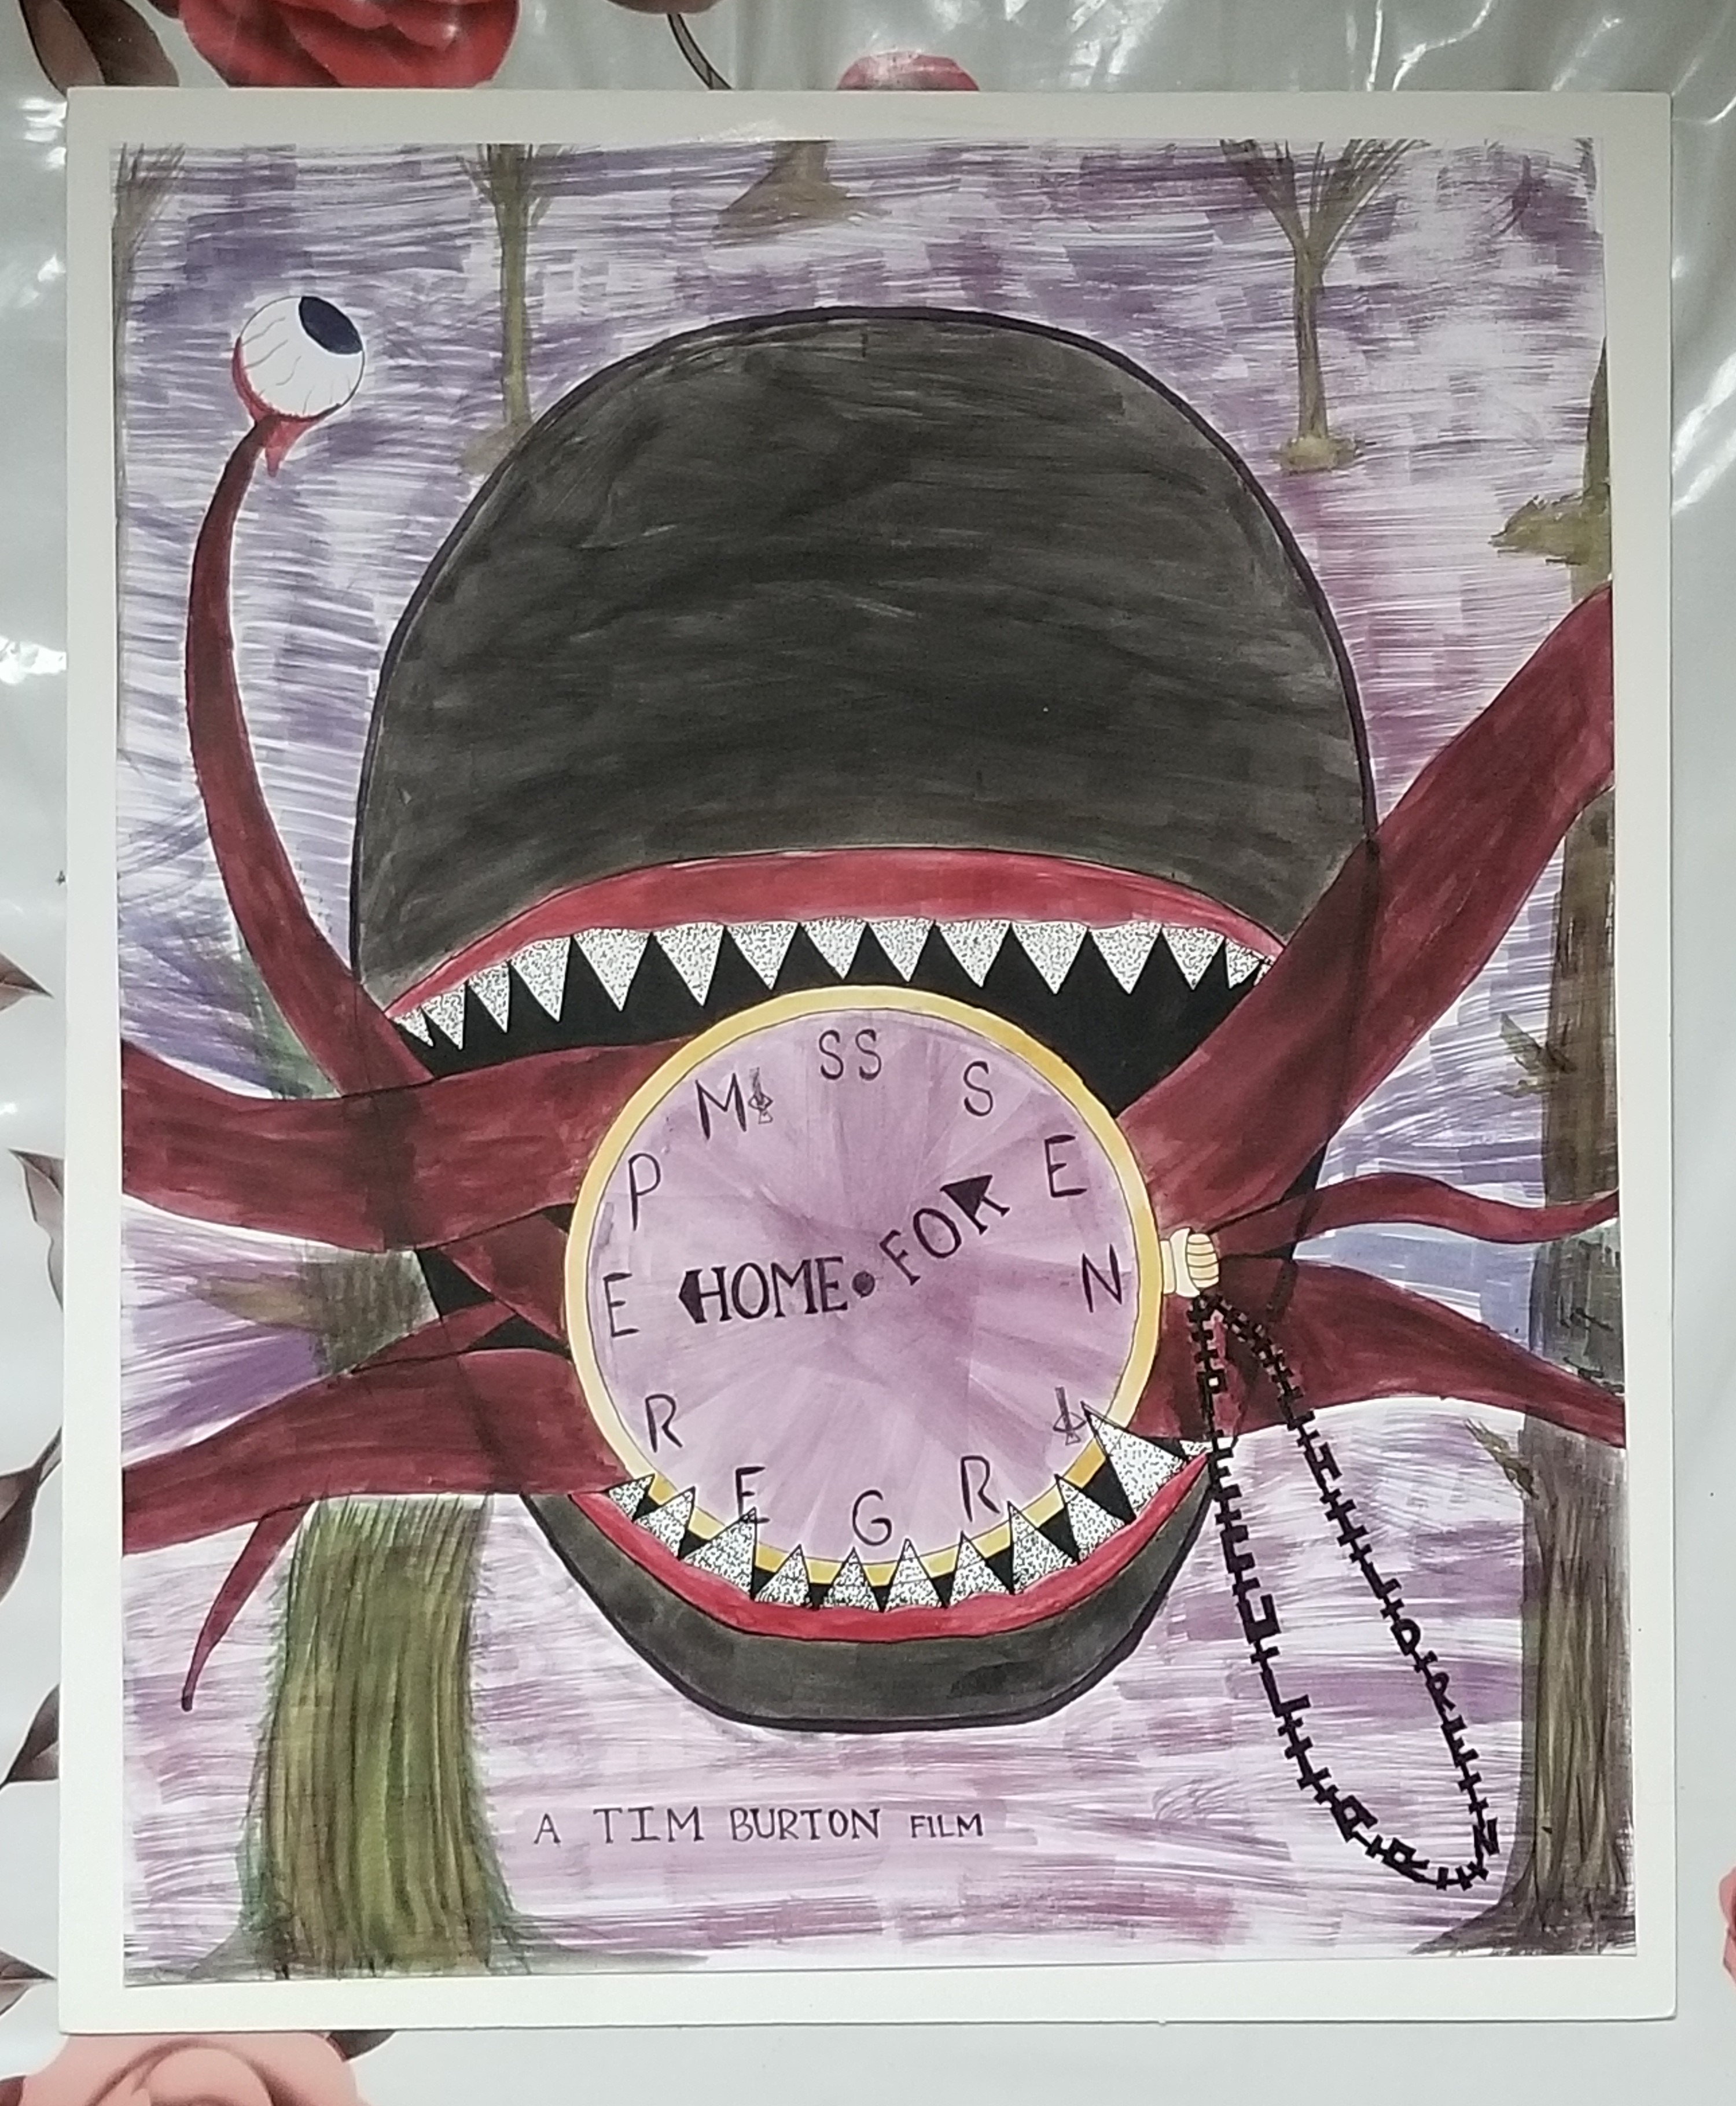 MiSS
PEREGRiNES
HOME FOR
PECULIAR
CHILDREN
A TIM BURTON FILM